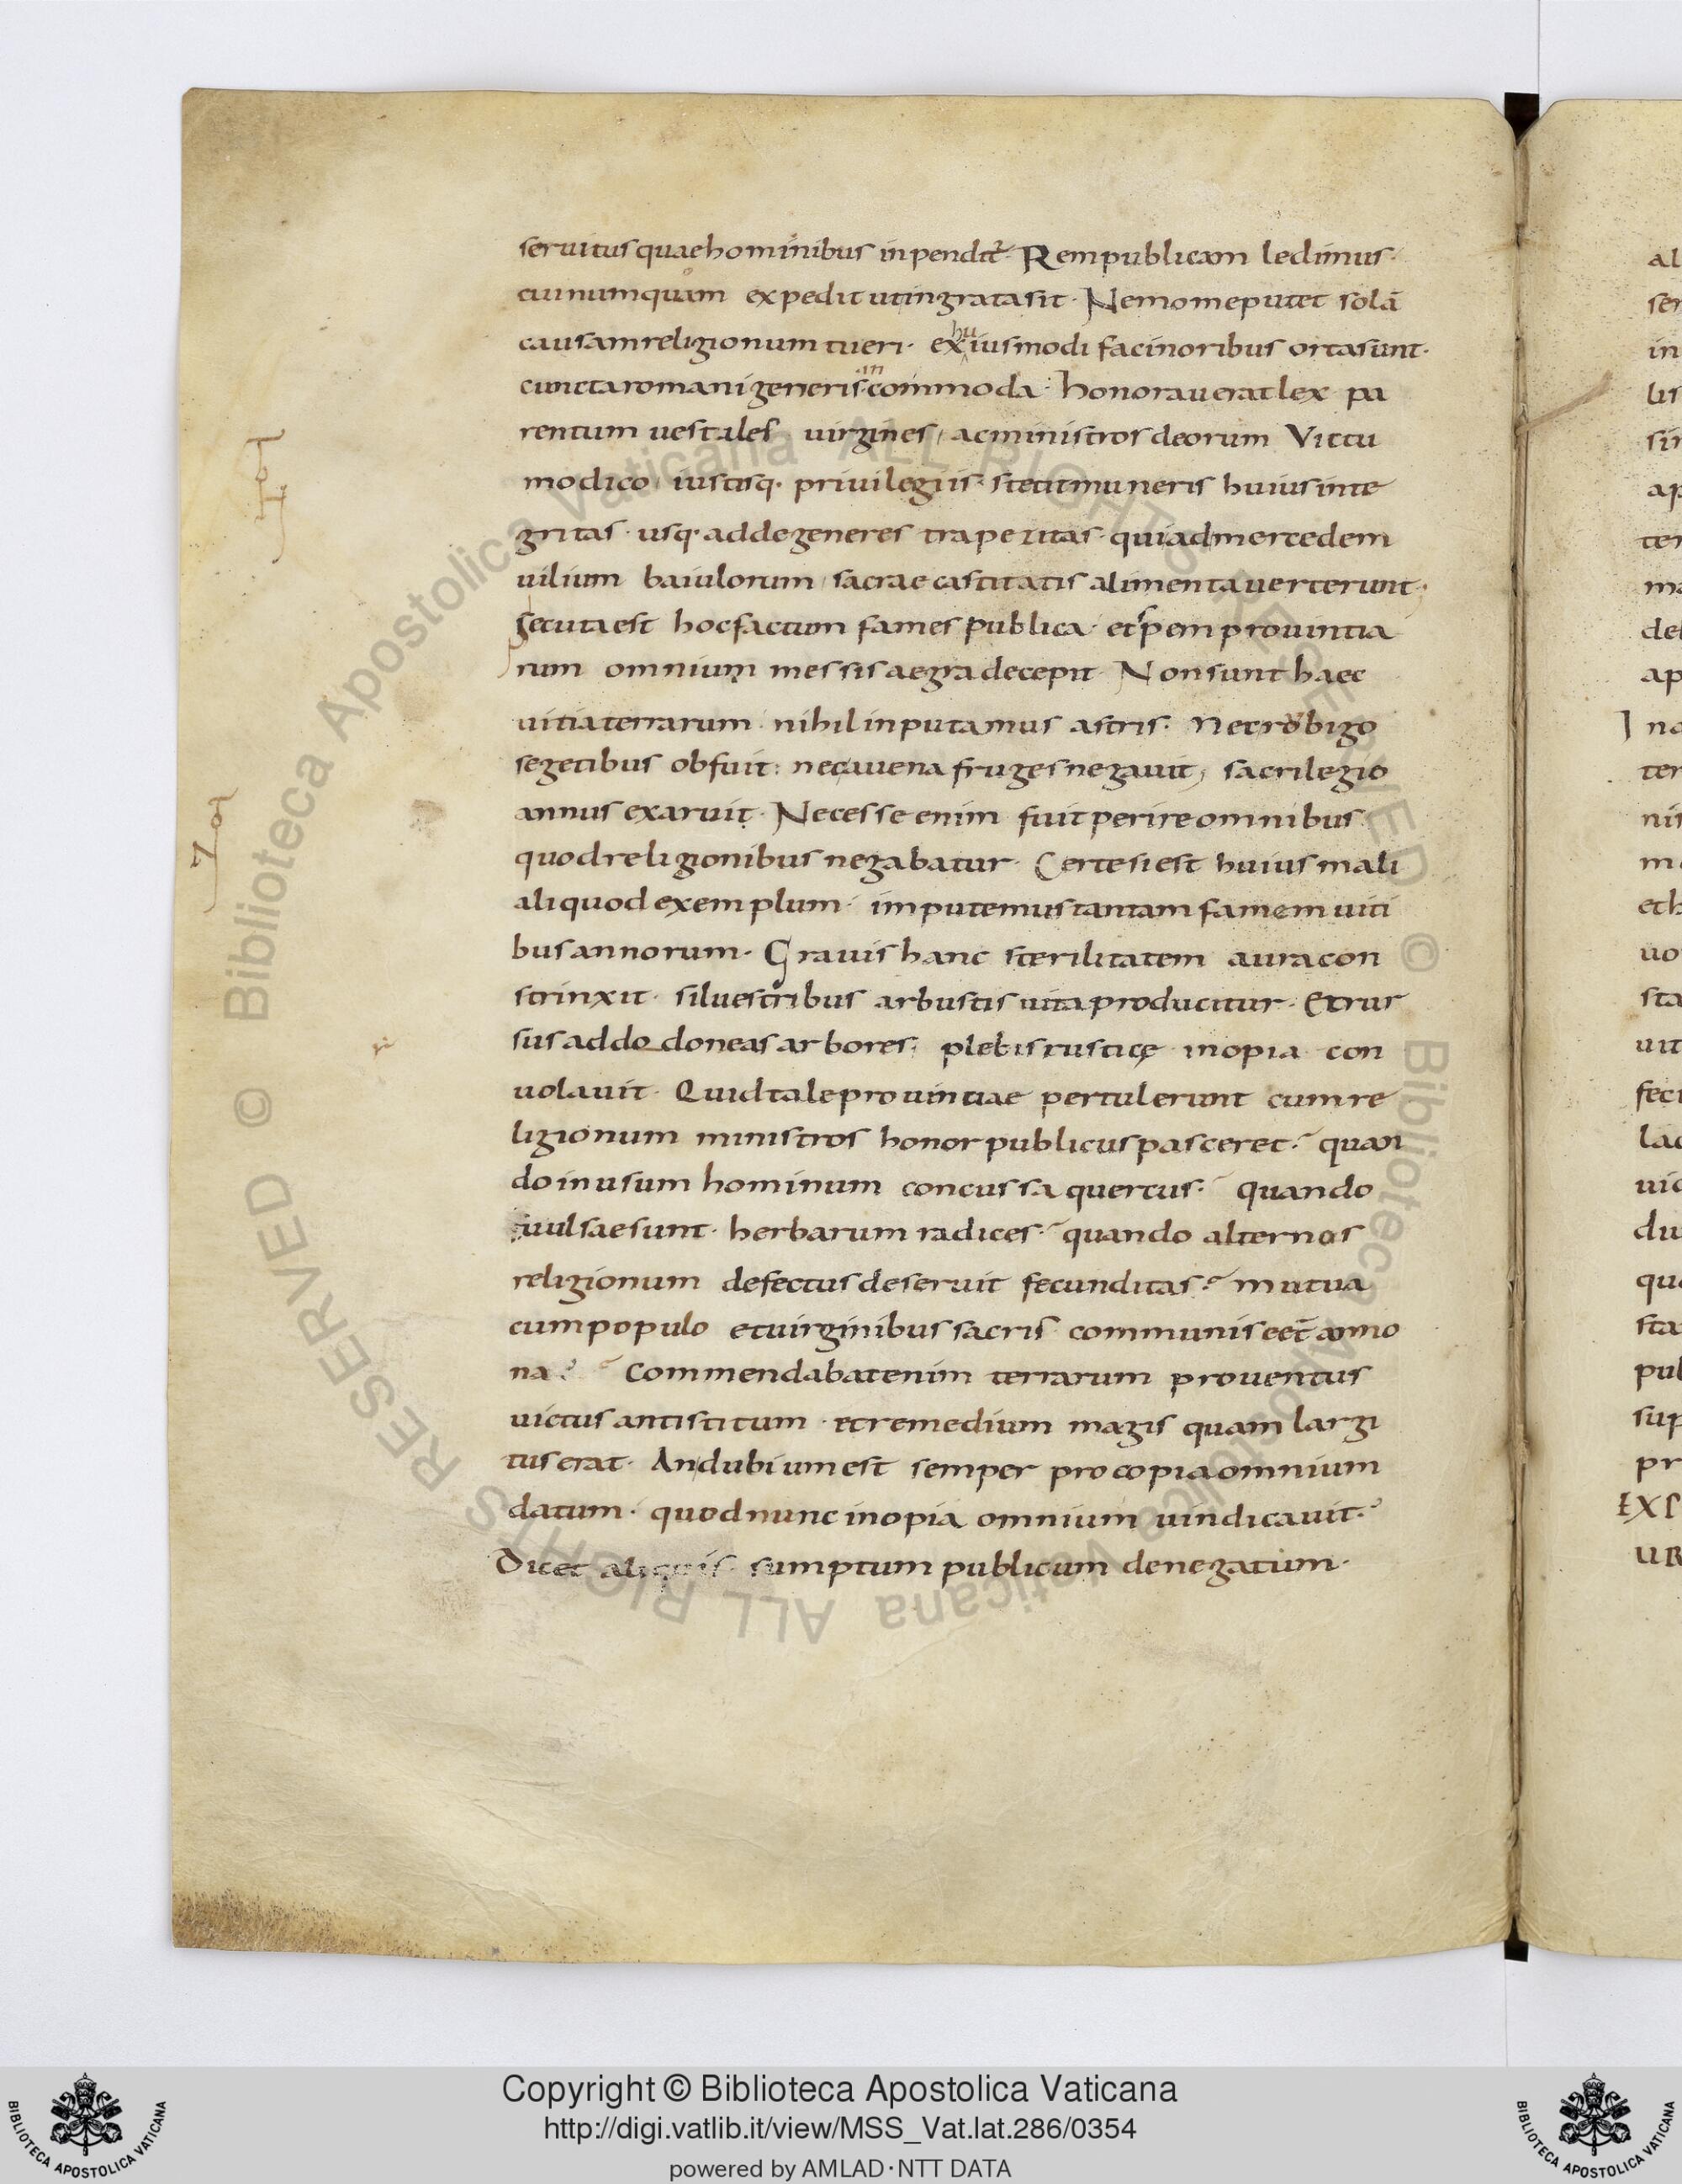 seruitus quae hominibus inpenditˀ. Rempublicam ledimus.
cui numquam expedit ut ingrata sit. Nemo me putet solā
causam religionum tueri. ex huiusmodi facinoribus orta sunt.
cuncta romani generis incommoda. honorauerat lex pa
rentum uestales uirgines, ac ministros deorum Victu
modico iustisq. priuilegiis. stetit muneris huius inte
gritas. usq. ad degeneres trapezitas. qui ad mercedem
uilium baiulorum sacrae castitatis alimenta uerterunt.
Secuta est hoc factum fames publica. et spem prouintia
rum omnium messis aegra decepit. Non sunt haec
uitia terrarum. nihil inputamus astris. Nec robigo
segetibus obfuit: nec auena fruges negauit, sacrilegio
annus exaruit. Necesse enim fuit perire omnibus
quod religionibus negabatur. Certe si est huius mali
aliquod exemplum. imputemus tantam famem uiti
bus annorum. Grauis hanc sterilitatem aura con
strinxit. siluestribus arbustis uita producitur. Et rur
sus ad dodoneas arbores; plebis rusticę inopia con
uolauit. Quid tale prouintiae pertulerunt cum re
ligionum ministros honor publicus pasceret? quan
do in usum hominum concussa quercus? quando
uulsae sunt. herbarum radices? quando alternos
religionum defectus deseruit fecunditas? mutua
cum populo et uirginibus sacris communis eēt anno
na? Commendabat enim terrarum prouentus
uictus antistitum. et remedium magis quam largi
tus erat. An dubium est semper pro copia omnium
datum. quod nunc inopia omnium uindicauit?
Dicet aliquis. sumptum publicum denegatum.
al
ser
in
lis
sin
ap
ter
ma
deb
ap
I na
ter
nis
mo
eth
uo
sta
uit
feci
lac
uic
du
qu
sta
pub
sup
pr
EXP
UR
© Biblioteca Apostolica Vaticana ALL RIGHTS RESERVED © Biblioteca Apostolica Vaticana ALL RIGHTS RESERVED
Copyright © Biblioteca Apostolica Vaticana
http://digi.vatlib.it/view/MSS_Vat.lat.286/0354
powered by AMLAD·NTT DATA
BIBLIOTECA APOSTOLICA VATICANA
BIBLIOTECA APOSTOLICA VATICANA